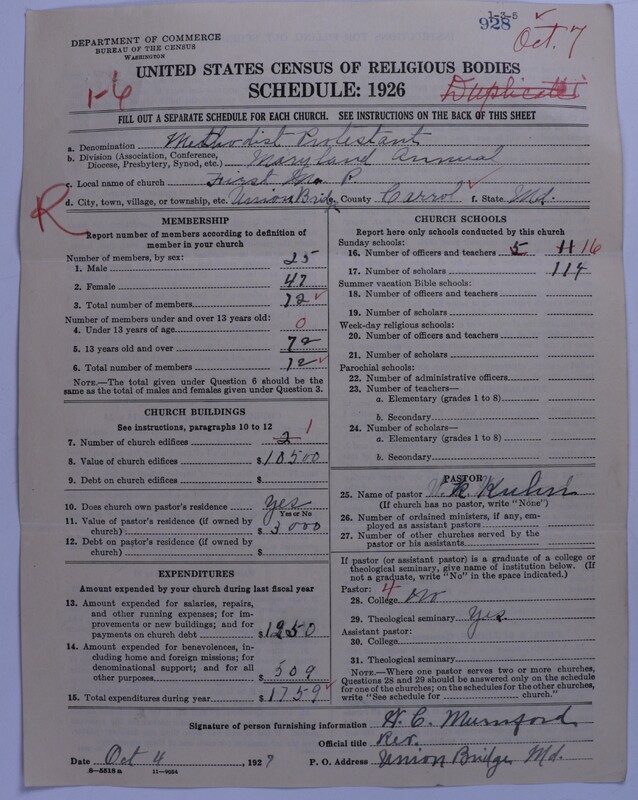 1-3-5
928
Oct. 7
DEPARTMENT OF COMMERCE
BUREAU OF THE CENSUS
WASHINGTON
UNITED STATES CENSUS OF RELIGIOUS BODIES
SCHEDULE: 1926
1-6
Duplicate
FILL OUT A SEPARATE SCHEDULE FOR EACH CHURCH. SEE INSTRUCTIONS ON THE BACK OF THIS SHEET
a. Denomination Methodist Protestant
b. Division (Association, Conference, Diocese, Presbytery, Synod, etc.) Maryland Annual
c. Local name of church First M. P.
d. City, town, village, or township, etc. Union Bridge County Carrol f. State Md.
R
MEMBERSHIP
Report number of members according to definition of
member in your church
Number of members, by sex:
1. Male 25
2. Female 47
3. Total number of members 72
Number of members under and over 13 years old:
4. Under 13 years of age 0
5. 13 years old and over 72
6. Total number of members 72
NOTE.—The total given under Question 6 should be
the same as the total of males and females given under Question 3.
CHURCH BUILDINGS
See instructions, paragraphs 10 to 12
7. Number of church edifices 2 1
8. Value of church edifices $ 10500
9. Debt on church edifices $
10. Does church own pastor's residence Yes
Yes or No
11. Value of pastor's residence (if owned by
church) $ 3000
12. Debt on pastor's residence (if owned by
church) $
EXPENDITURES
Amount expended by your church during last fiscal year
13. Amount expended for salaries, repairs,
and other running expenses; for im-
provements or new buildings; and for
payments on church debt $ 1250
14. Amount expended for benevolences, in-
cluding home and foreign missions; for
denominational support; and for all
other purposes $ 509
15. Total expenditures during year $ 1759
CHURCH SCHOOLS
Report here only schools conducted by this church
Sunday schools:
16. Number of officers and teachers 5 11 16
17. Number of scholars 114
Summer vacation Bible schools:
18. Number of officers and teachers
19. Number of scholars
Week-day religious schools:
20. Number of officers and teachers
21. Number of scholars
Parochial schools:
22. Number of administrative officers
23. Number of teachers—
a. Elementary (grades 1 to 8)
b. Secondary
24. Number of scholars—
a. Elementary (grades 1 to 8)
b. Secondary
PASTOR
25. Name of pastor Kuhn
(If church has no pastor, write "None")
26. Number of ordained ministers, if any, em-
ployed as assistant pastors
27. Number of other churches served by the
pastor or his assistants
If pastor (or assistant pastor) is a graduate of a college or
theological seminary, give name of institution below. (If
not a graduate, write "No" in the space indicated.)
Pastor: 4
28. College no
29. Theological seminary Yes
Assistant pastor:
30. College
31. Theological seminary
NOTE.—Where one pastor serves two or more churches,
Questions 28 and 29 should be answered only on the schedule
for one of the churches; on the schedules for the other churches,
write "See schedule for church."
Signature of person furnishing information H. C. Mumford
Official title Rev.
Date Oct 4, 1927 P. O. Address Union Bridge Md.
8-5518a 11-9064